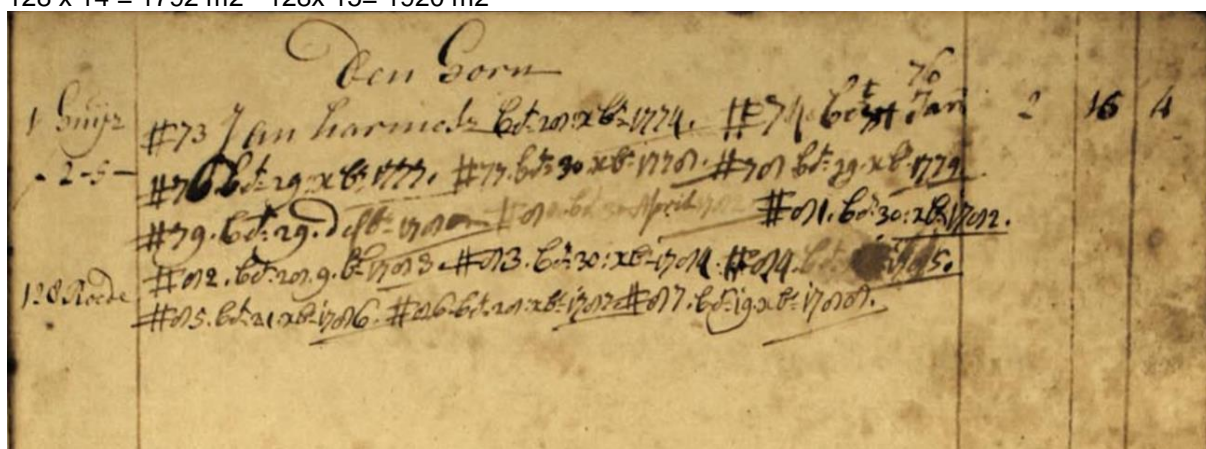 128 x 14 = 1792 m2 128x 15= 1920 m2
Den Horn
76
1 Huijs #73 Jan Harmels bet: 28: xbr 1774. #74. bet Jan 2 16 4
- 2-5 - #76. bet: 29. xbr: 1777. #77. bet: 30 xbr: 1778. #78 bet: 29. xbr: 1779
#79. bet: 29. 1780 April #81. bet: 30: xbr: 1782.
128 Roede #82. bet: 28. 9. br: 1783. #83. bet: 30: xbr: 1784. #84. 1785.
#85. bet: 21. xbr: 1786. #86. bet: 28: xbr: 1787 #87. bet: 19. xbr: 1788.